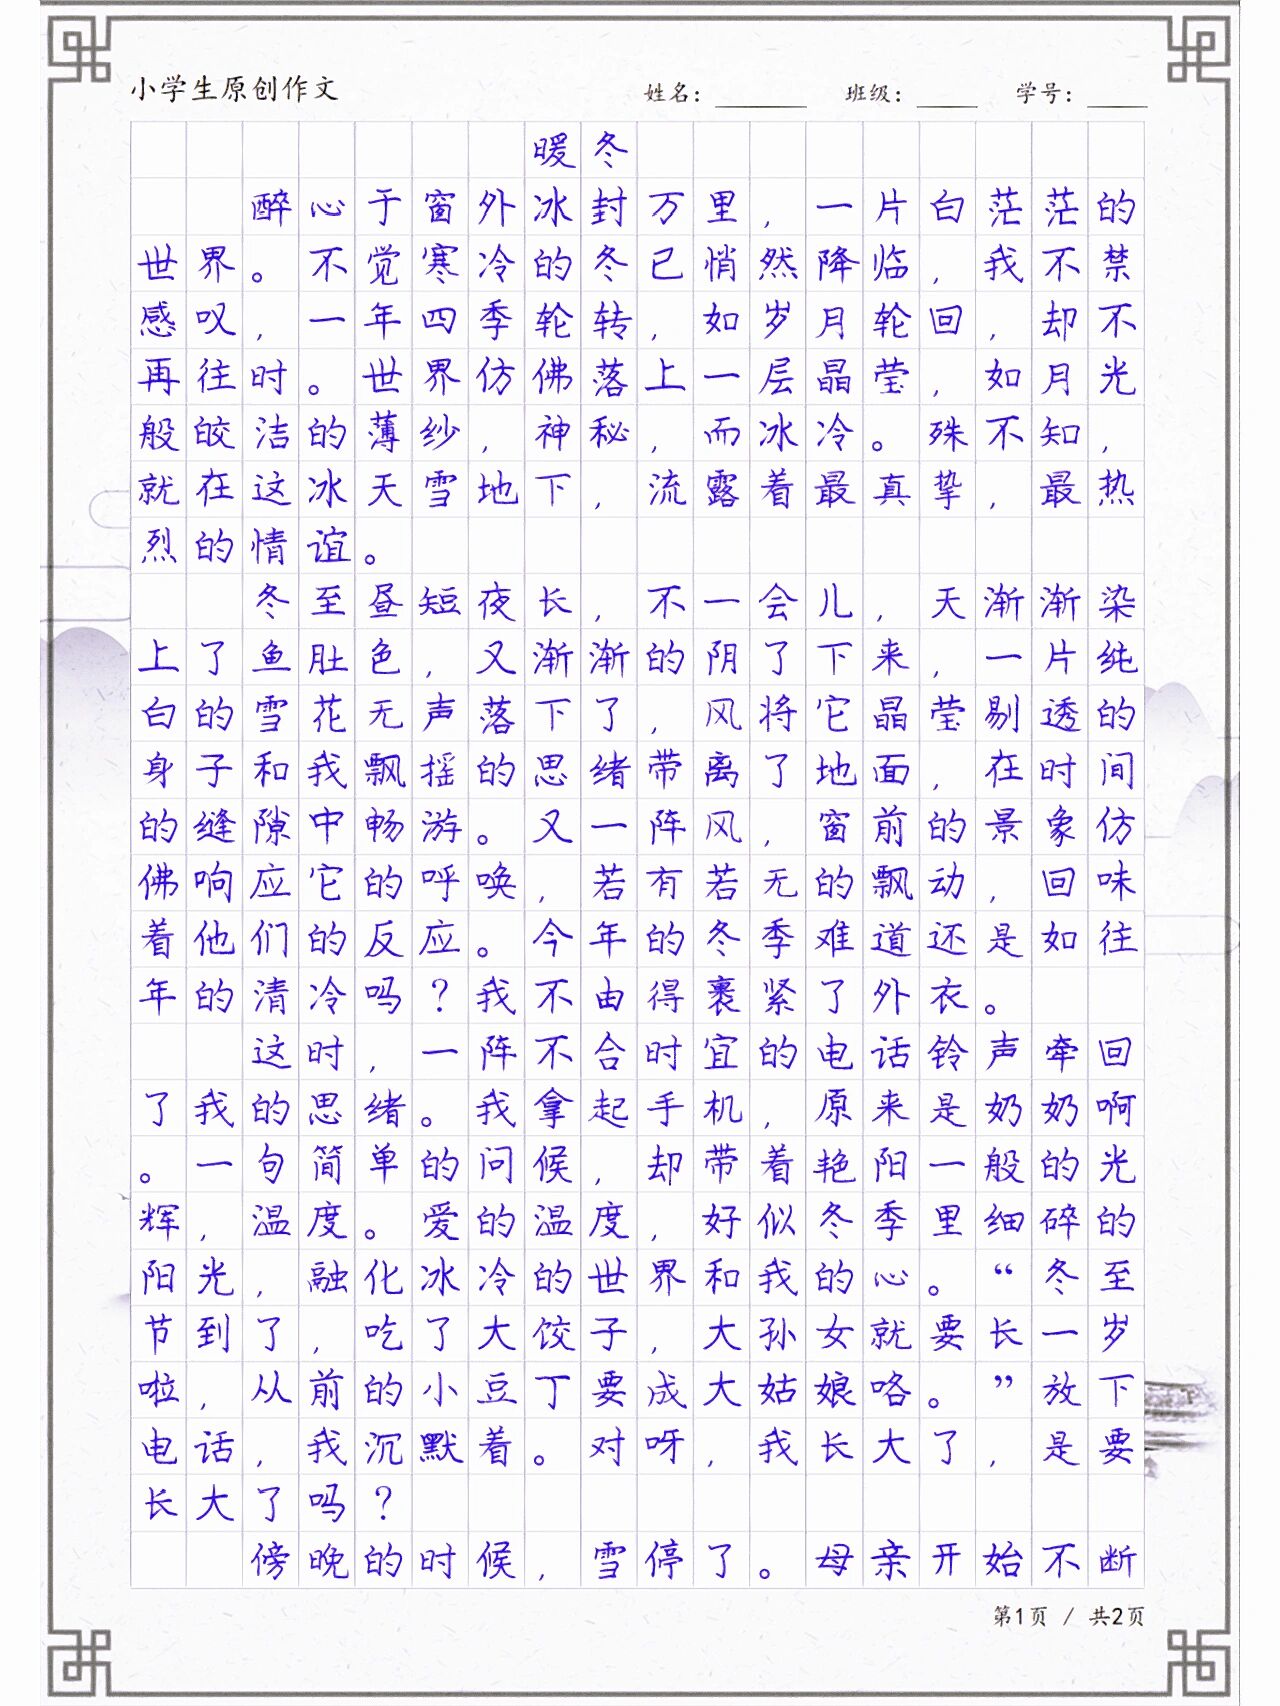 小学生原创作文 姓名： 班级： 学号：
暖冬
醉心于窗外冰封万里，一片白茫茫的
世界。不觉寒冷的冬已悄然降临，我不禁
感叹，一年四季轮转，如岁月轮回，却不
再往时。世界仿佛落上一层晶莹，如月光
般皎洁的薄纱，神秘，而冰冷。殊不知，
就在这冰天雪地下，流露着最真挚，最热
烈的情谊。
冬至昼短夜长，不一会儿，天渐渐染
上了鱼肚色，又渐渐的阴了下来，一片纯
白的雪花无声落下了，风将它晶莹剔透的
身子和我飘摇的思绪带离了地面，在时间
的缝隙中畅游。又一阵风，窗前的景象仿
佛响应它的呼唤，若有若无的飘动，回味
着他们的反应。今年的冬季难道还是如往
年的清冷吗？我不由得裹紧了外衣。
这时，一阵不合时宜的电话铃声牵回
了我的思绪。我拿起手机，原来是奶奶啊
。一句简单的问候，却带着艳阳一般的光
辉，温度。爱的温度，好似冬季里细碎的
阳光，融化冰冷的世界和我的心。“冬至
节到了，吃了大饺子，大孙女就要长一岁
啦，从前的小豆丁要成大姑娘咯。”放下
电话，我沉默着。对呀，我长大了，是要
长大了吗？
傍晚的时候，雪停了。母亲开始不断
第1页 / 共2页